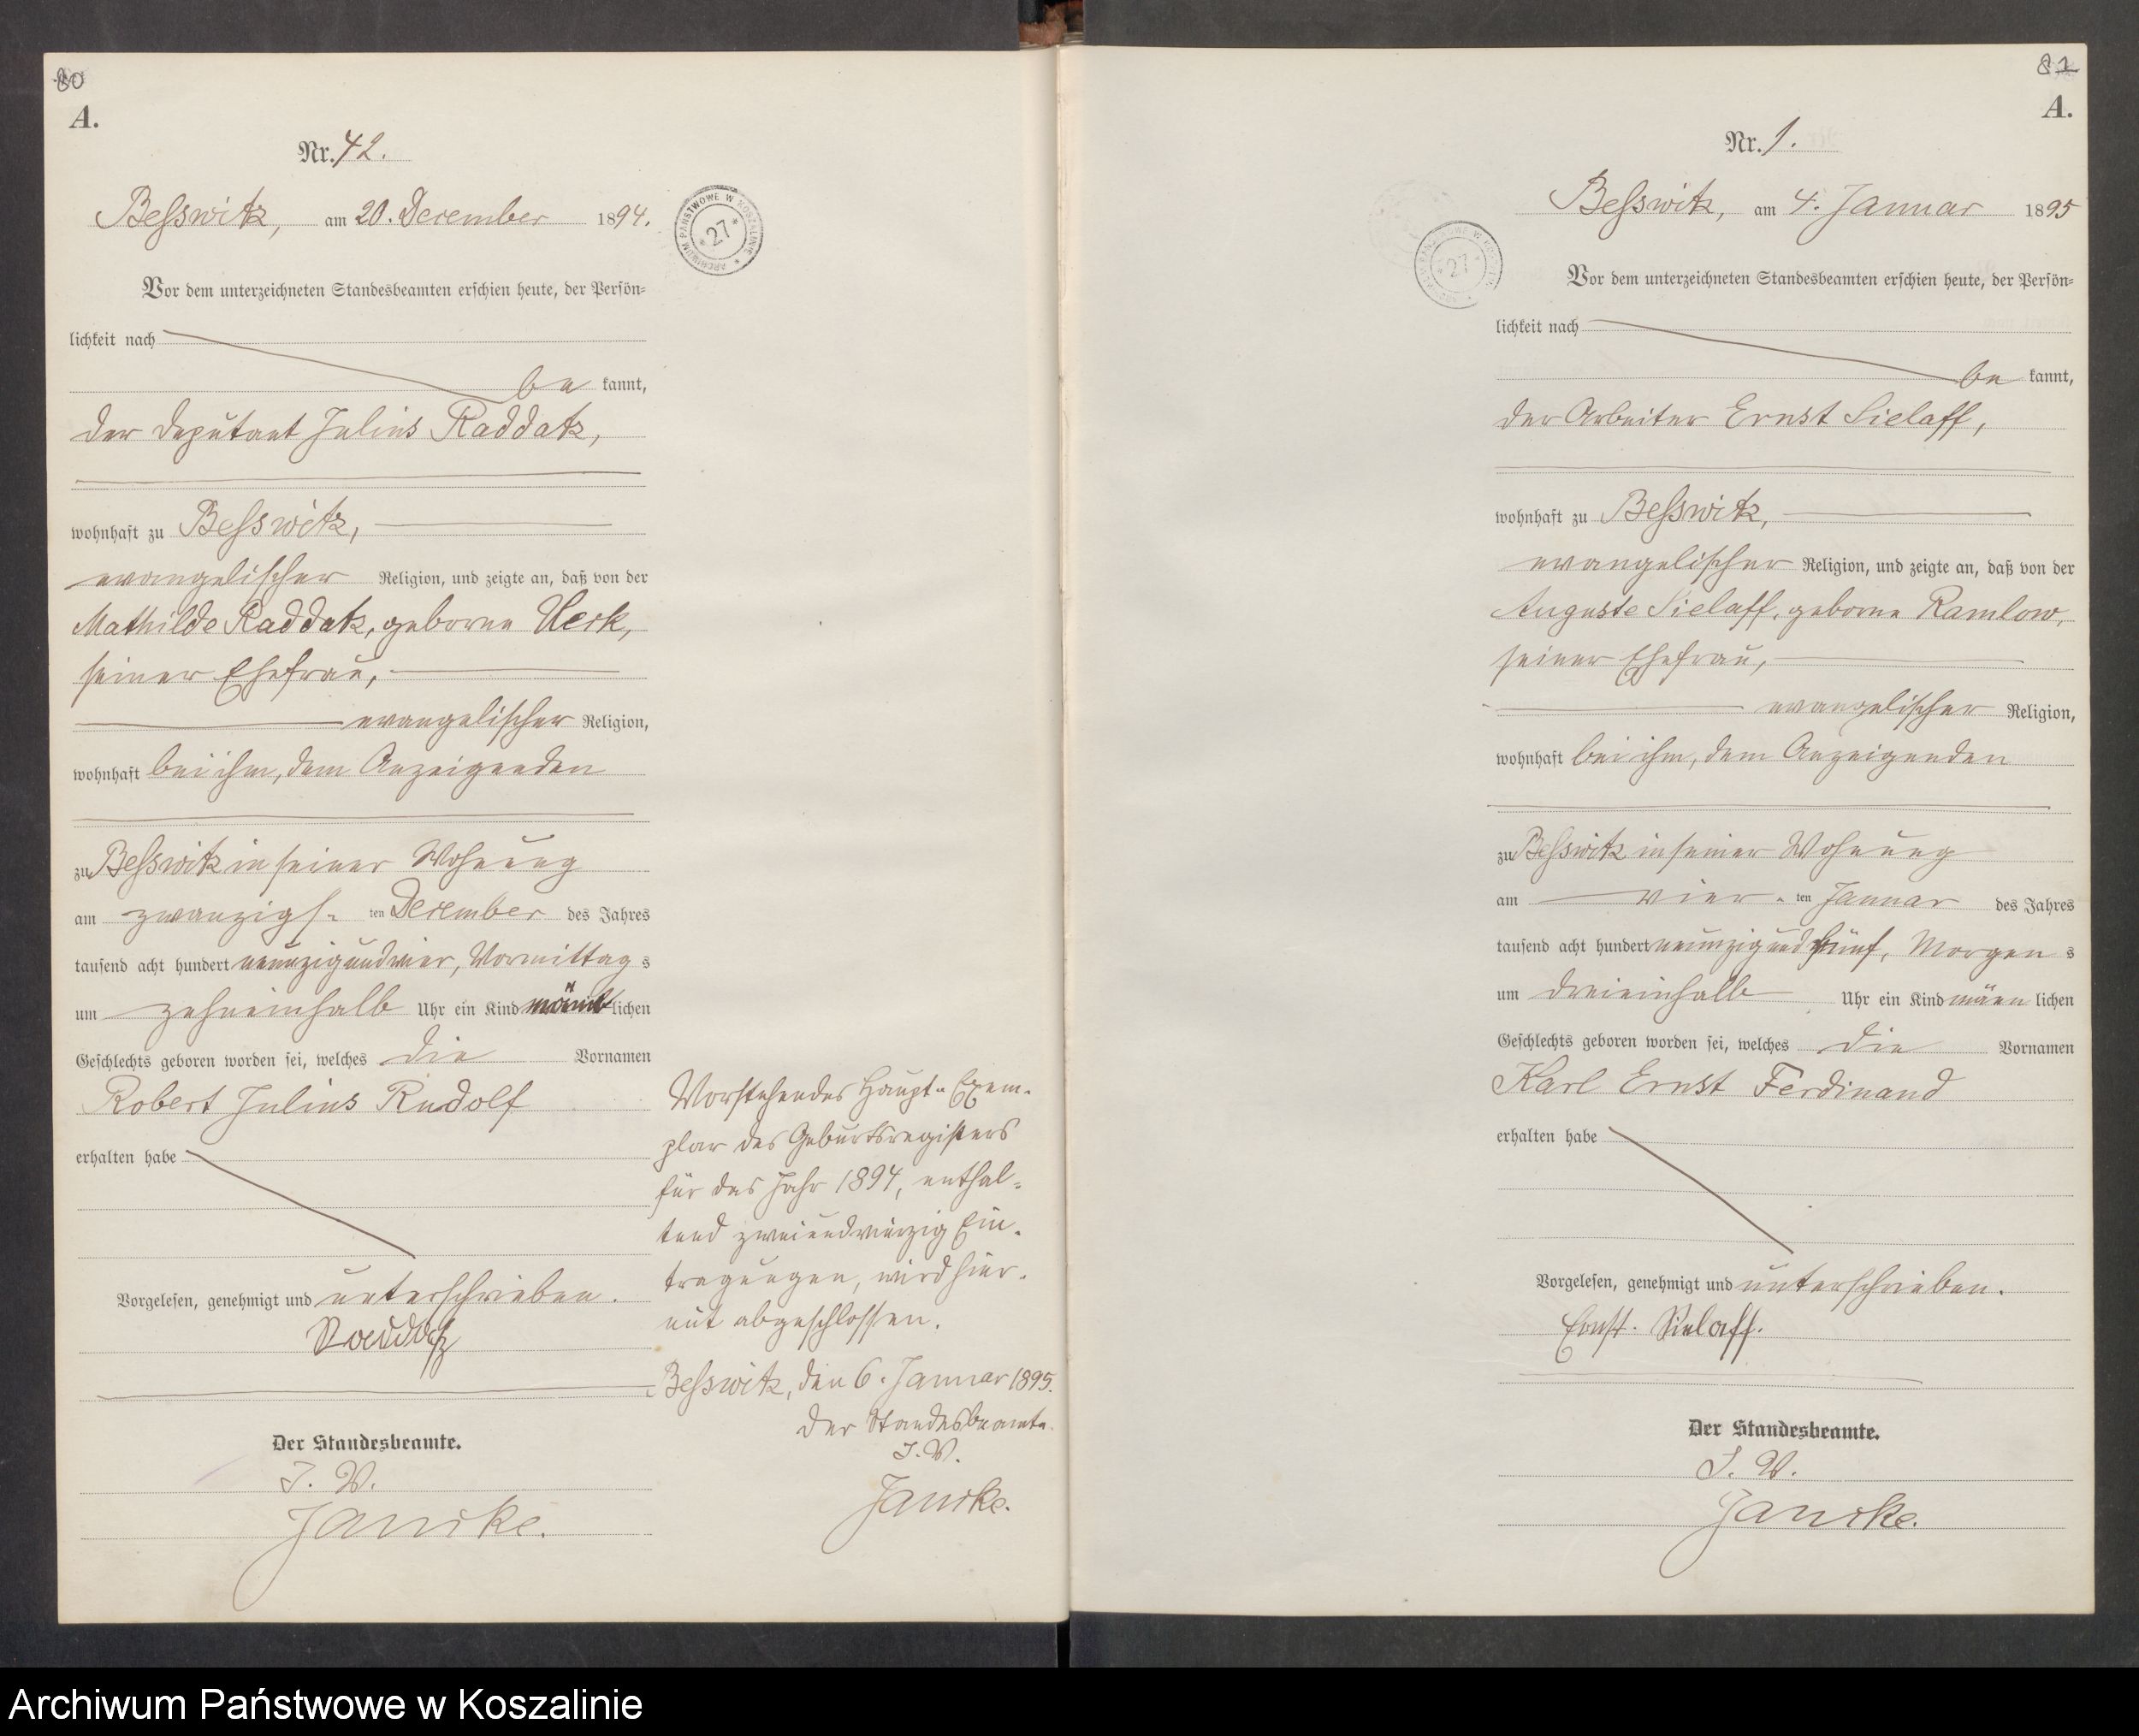 80
A.
Nr. 42.
Besswitz, am 20. December 1894.
ARCHIWUM PAŃSTWOWE W KOSZALINIE * 27 *
Vor dem unterzeichneten Standesbeamten erschien heute, der Persön=
lichkeit nach
be kannt,
der Deputant Julius Raddatz,
wohnhaft zu Besswitz,
evangelischer Religion, und zeigte an, daß von der
Mathilde Raddatz, geborne
seiner Ehefrau,
evangelischer Religion,
wohnhaft bei ihm, dem Anzeigenden
zu Besswitz in seiner Wohnung
am zwanzigs- ten December des Jahres
tausend acht hundert neunzig und vier, Vormittag s
um zehneinhalb Uhr ein Kind männ lichen
Geschlechts geboren worden sei, welches die Vornamen
Robert Julius Rudolf
erhalten habe
Vorgelesen, genehmigt und unterschrieben.
Raddatz
Der Standesbeamte.
I. V.
Jancke.
Vorstehendes Haupt-Exem-
plar des Geburtsregisters
für das Jahr 1894, enthal-
tend zweiundvierzig Ein-
tragungen, wird hier-
mit abgeschlossen.
Besswitz, den 6. Januar 1895.
Der Standesbeamte.
I. V.
Jancke.
81
A.
Nr. 1.
Besswitz, am 4. Januar 1895
27
Vor dem unterzeichneten Standesbeamten erschien heute, der Persön=
lichkeit nach
be kannt,
der Arbeiter Ernst Sielaff,
wohnhaft zu Besswitz,
evangelischer Religion, und zeigte an, daß von der
Auguste Sielaff, geborne Ramlow,
seiner Ehefrau,
evangelischer Religion,
wohnhaft bei ihm, dem Anzeigenden
zu Besswitz in seiner Wohnung
am vier- ten Januar des Jahres
tausend acht hundert neunzig und fünf, Morgen s
um dreieinhalb Uhr ein Kind männ lichen
Geschlechts geboren worden sei, welches die Vornamen
Karl Ernst Ferdinand
erhalten habe
Vorgelesen, genehmigt und unterschrieben.
Ernst. Sielaff.
Der Standesbeamte.
I. V.
Jancke.
Archiwum Państwowe w Koszalinie